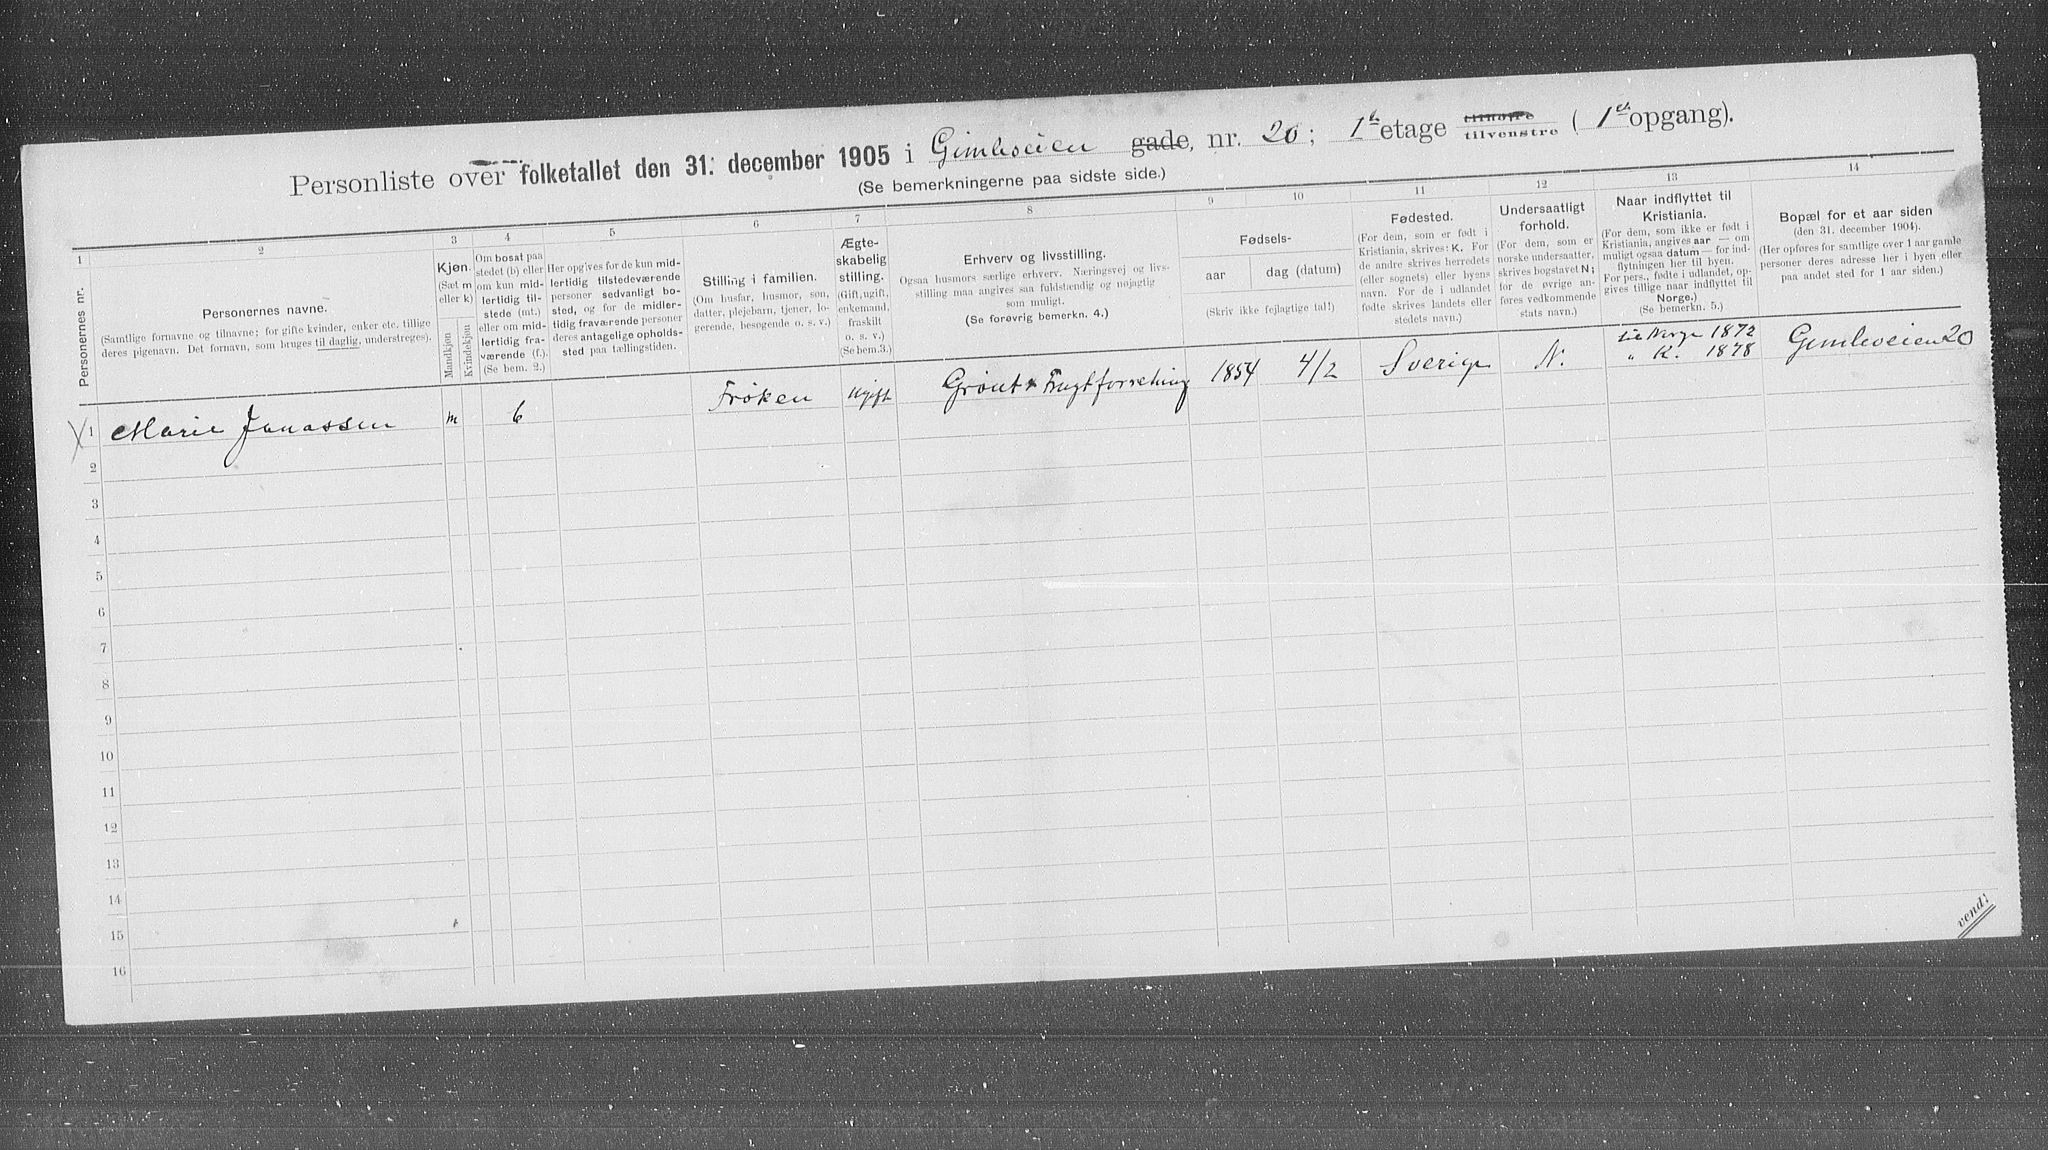 Personliste over folketallet den 31. december 1905 i Gimleveien gade, nr. 20; 1ste etage tilhøire tilvenstre (1ste opgang).
(Se bemerkningerne paa sidste side.)
1 2 3 4 5 6 7 8 9 10 11 12 13 14
Personernes nr.
Personernes navne.
(Samtlige fornavne og tilnavne; for gifte kvinder, enker etc. tillige
deres pigenavn. Det fornavn, som bruges til daglig, understreges).
Kjøn.
(Sæt m
eller k)
Mandkjøn
Kvindekjøn
Om bosat paa
stedet (b) eller
om kun mid-
lertidig til-
stede (mt.)
eller om mid-
lertidig fra-
værende (f.)
(Se bem. 2.)
Her opgives for de kun mid-
lertidig tilstedeværende
personer sedvanligt bo-
sted, og for de midler-
tidig fraværende personer
deres antagelige opholds-
sted paa tællingstiden.
Stilling i familien.
(Om husfar, husmor, søn,
datter, plejebarn, tjener, lo-
gerende, besøgende o. s. v.)
Ægte-
skabelig
stilling.
(Gift, ugift,
enkemand,
fraskilt
o. s. v.)
(Se bem.3.)
Erhverv og livsstilling.
Ogsaa husmors særlige erhverv. Næringsvej og livs-
stilling maa angives saa fuldstændig og nøjagtig
som muligt.
(Se forøvrig bemerkn. 4.)
Fødsels-
aar
dag (datum)
(Skriv ikke fejlagtige tal!)
Fødested.
(For dem, som er født i
Kristiania, skrives: K. For
de andre skrives herredets
(eller sognets) eller byens
navn. For de i udlandet
fødte skrives landets eller
stedets navn.)
Undersaatligt
forhold.
(For dem, som er
norske undersaatter,
skrives bogstavet N;
for de øvrige an-
føres vedkommende
stats navn.)
Naar indflyttet til
Kristiania.
(For dem, som ikke er født i
Kristiania, angives aar — om
muligt ogsaa datum — for ind-
flytningen her til byen.
For pers., fødte i udlandet, op-
gives tillige naar indflyttet til
Norge.)
(Se bemerkn. 5.)
Bopæl for et aar siden
(den 31. december 1904).
(Her opføres for samtlige over 1 aar gamle
personer deres adresse her i byen eller
paa andet sted for 1 aar siden.)
1 Marie Janassen m b Frøken ugift Grønt & Frugtforretning 1854 4/2 Sverige N. til Norge 1872 Gimleveien 20
" K. 1878
2
3
4
5
6
7
8
9
10
11
12
13
14
15
16
vend!